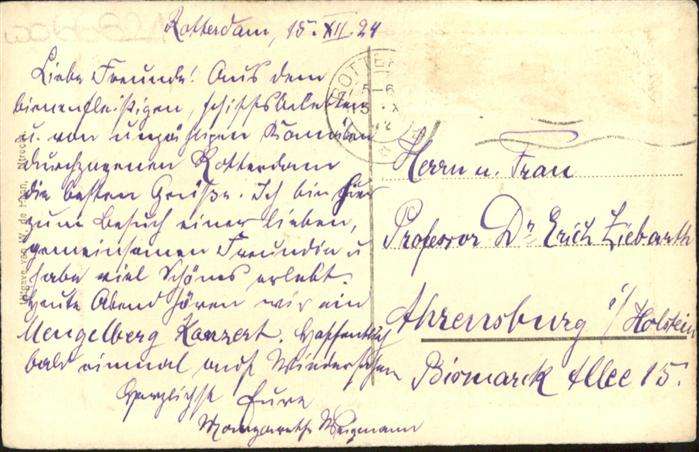 Rotterdam, 15. XII. 24
Liebe Freunde! Aus dem
bienenfleißigen, schiffsbelebten
u. von unzähligen Kanälen
durchzogenen Rotterdam
die besten Grüße. Ich bin hier
zum Besuch einer lieben,
gemeinsamen Freundin u
habe viel Schönes erlebt.
Heute Abend hören wir ein
Mengelberg Konzert. Hoffentlich
bald einmal auf Wiedersehen
Herzlichst Eure
Margarethe Wiegmann
Herrn u. Frau
Professor Dr Erich Ziebarth
Ahrensburg i/Holstein
Bismarck Allee 15.
ROTTE
5-6